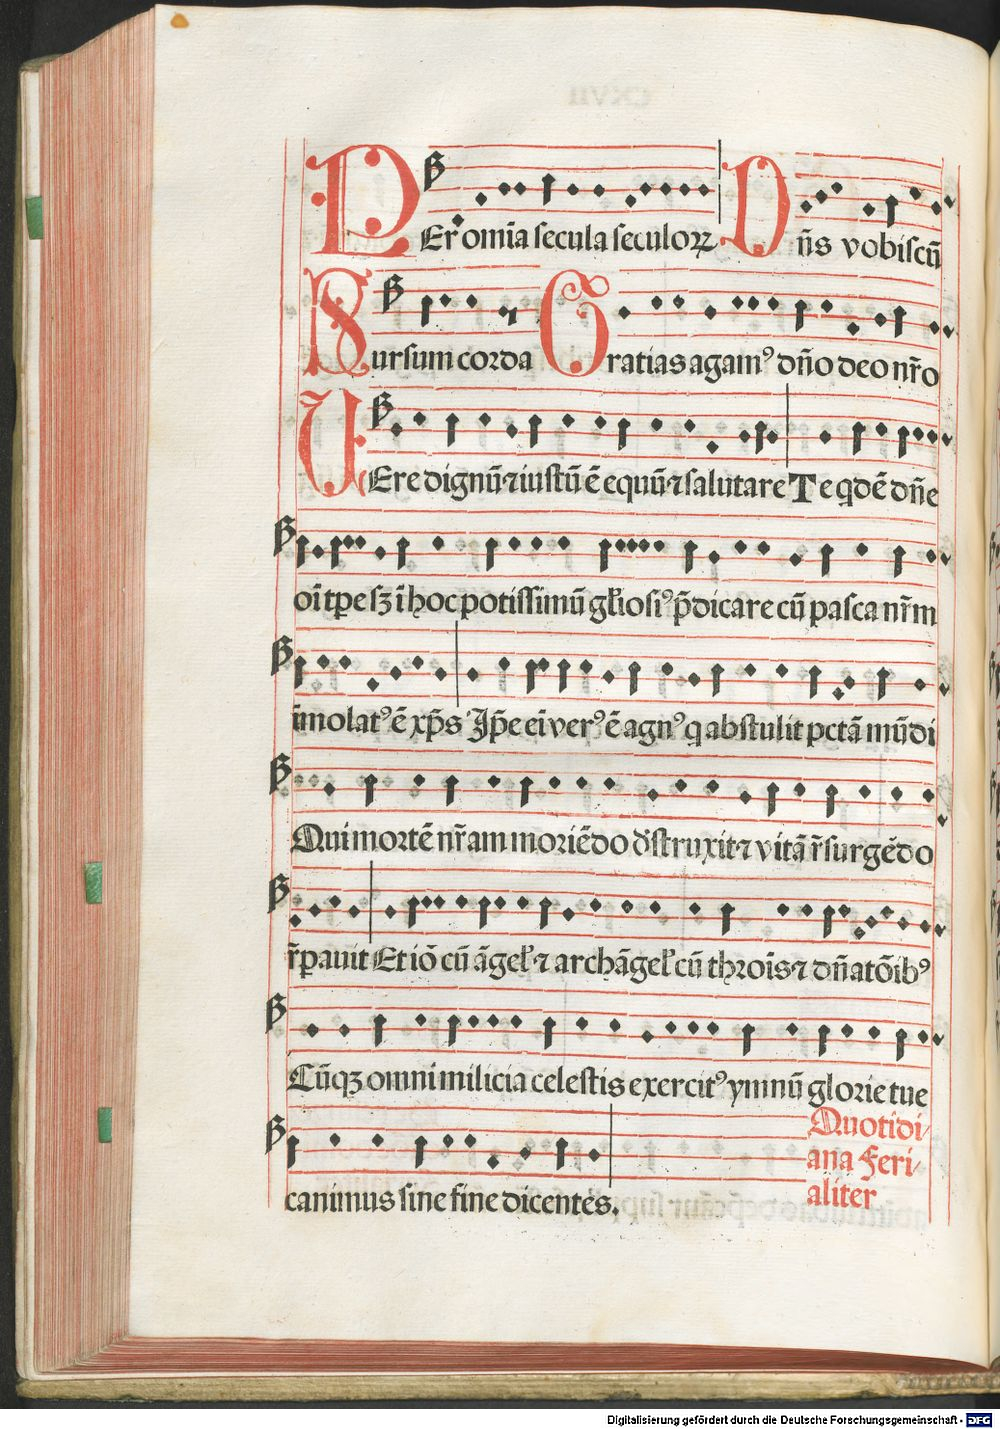 PErꝰ om̄ia secula seculoꝝ Dn̄s vobiscū
Sursum corda Gratias agamꝰ dn̄o deo nr̄o
VEre dignū ⁊ iustū ē equū ⁊ salutare Te qdē dn̄e
oī tpe sꝫ ī hoc potissimū gl̄iosiꝰ p̄dicare cū pasca nr̄m
īmolatꝰ ē xp̄s Ip̄e eī verꝰ ē agnꝰ q abstulit pctā mūdi
Qui mortē nr̄am moriēdo dstruxit ⁊ vitā r̄surgēdo
r̄pauit Et iō cū āgel̓ ⁊ archāgel̓ cū throīs ⁊ dn̄atōibꝰ
Cūqꝫ omni milicia celestis exercitꝰ ymnū glorie tue
canimus sine fine dicentes.
Quotidi/
ana Feri/
aliter
Digitalisierung gefördert durch die Deutsche Forschungsgemeinschaft - DFG